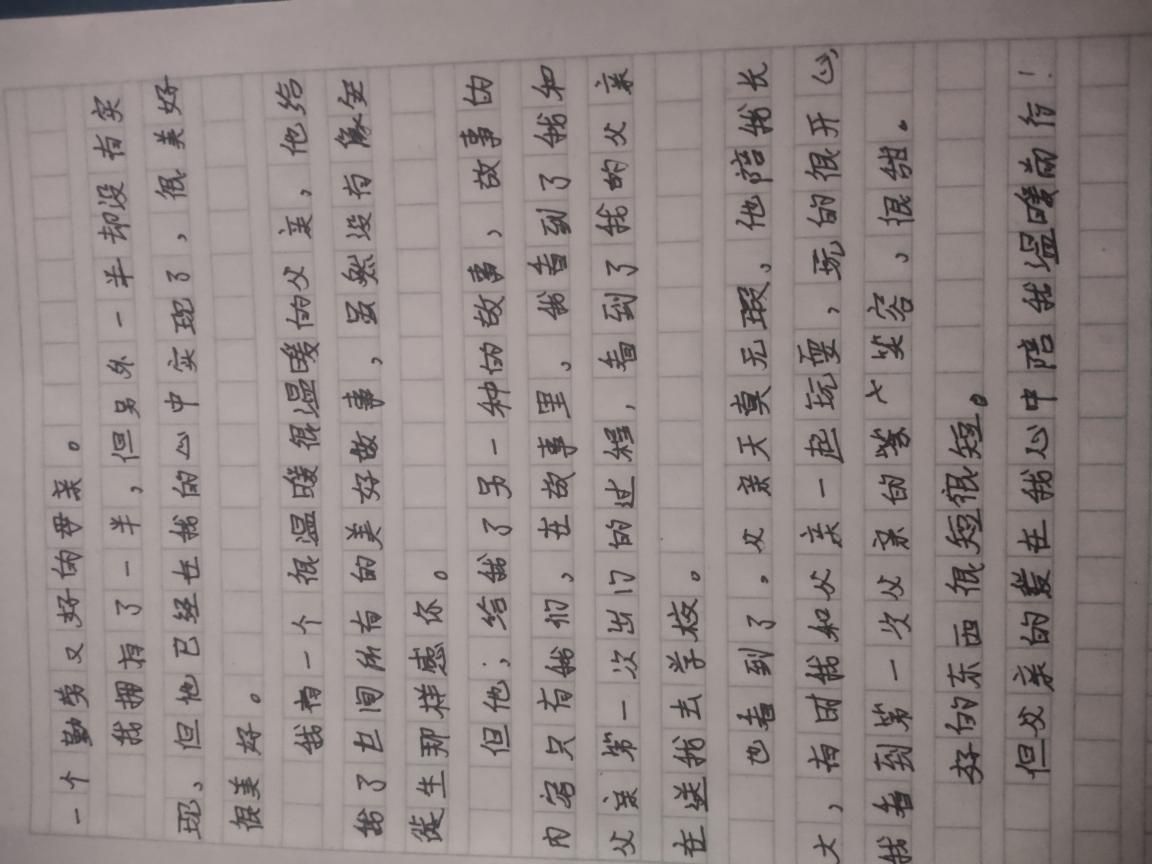 一个勤劳又好的母亲。
我拥有了一半，但另外一半却没有实
现、但他已经在我的心中实现了，很美好
很美好。
我有一个很温暖很温暖的父亲，他给
我了世间所有的美好故事，虽然没有像全
徙生那样感你。
但他；给我了另一种的故事，故事的
内容只有我们，在故事里、我看到了我和
父亲第一次出门的过程，看到了我的父亲
在送我去学校。
也看到了，父亲天真无瑕、他陪我长
大，有时我和父亲一起玩耍，玩的很开心，
我看到第一次父亲的笑容，很甜。
好的东西很短很短。
但父亲的爱在我心中陪我温暖前行！